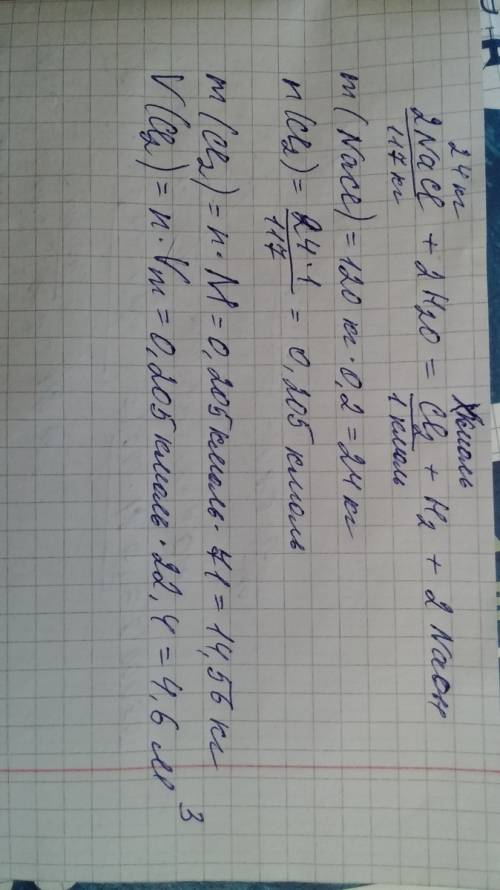 24 кг Xкмоль
2NaCl + 2H₂O = Cl₂ + H₂ + 2NaOH
117 кг 1 кмоль
m(NaCl) = 120 кг · 0,2 = 24 кг
n(Cl₂) = 24·1/117 = 0,205 кмоль
m(Cl₂) = n·M = 0,205 кмоль · 71 = 14,56 кг
V(Cl₂) = n·Vm = 0,205 кмоль · 22,4 = 4,6 м³